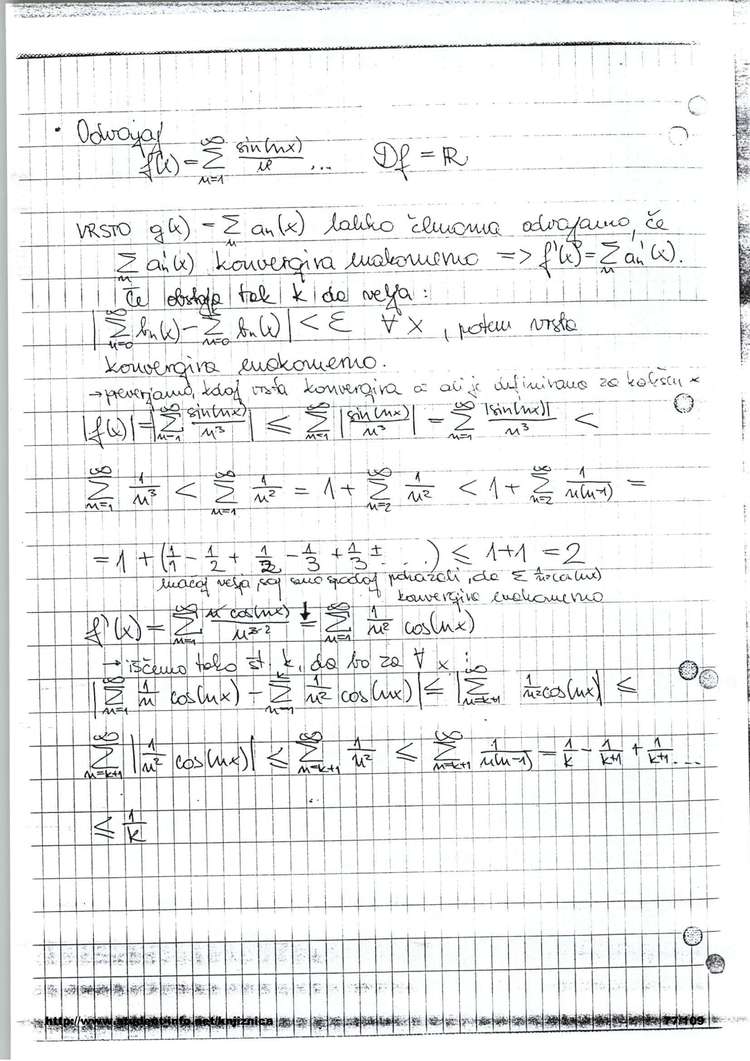 • Odvajaj
f(x) = ∑_{n=1}^{∞} sin(nx)/n³ ... Df = ℝ
VRSTO g(x) = ∑_n an(x) lahko členoma odvajamo, če
∑_n an'(x) konvergira enakomerno => f'(x) = ∑_n an'(x).
Če obstaja tak k da velja:
|∑_{n=0}^{∞} bn(x) - ∑_{n=0}^{k} bn(x)| < ε ∀ x, potem vrsta
konvergira enakomerno.
→ preverjamo, kdaj vrsta konvergira oz ali je definirana za kakšen x
|f(x)| = |∑_{n=1}^{∞} sin(nx)/n³| ≤ ∑_{n=1}^{∞} |sin(nx)/n³| = ∑_{n=1}^{∞} |sin(nx)|/n³ <
∑_{n=1}^{∞} 1/n³ < ∑_{n=1}^{∞} 1/n² = 1 + ∑_{n=2}^{∞} 1/n² < 1 + ∑_{n=2}^{∞} 1/n(n-1) =
= 1 + (1/1 - 1/2 + 1/2 - 1/3 + 1/3 ± ...) ≤ 1+1 = 2
enačaj velja, saj smo spodaj pokazali, da ∑ 1/n² cos(nx)
konvergira enakomerno
f'(x) = ∑_{n=1}^{∞} n cos(nx)/n^{3-2} = ∑_{n=1}^{∞} 1/n² cos(nx)
→ iščemo tako št. k, da bo za ∀ x :
|∑_{n=1}^{∞} 1/n cos(nx) - ∑_{n=1}^{k} 1/n² cos(nx)| ≤ |∑_{n=k+1}^{∞} 1/n² cos(nx)| ≤
∑_{n=k+1}^{∞} |1/n² cos(nx)| ≤ ∑_{n=k+1}^{∞} 1/n² ≤ ∑_{n=k+1}^{∞} 1/n(n-1) = 1/k - 1/k+1 + 1/k+1 ...
≤ 1/k
http://www.studentinfo.net/knjiznica 77/109